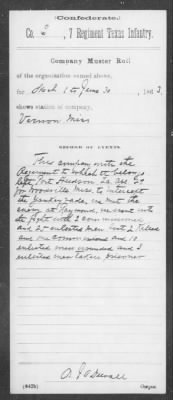 (Confederate.)
Co. , 7 Regiment Texas Infantry.
Company Muster Roll
of the organization named above,
for to June 30, 1863.
shows station of company,
Vernon Miss
RECORD OF EVENTS.
This company with the
Regiment to which it belongs
left Port Hudson La
for Woodville Miss. to intercept
the raid, we met the
enemy at Raymond, we went into
the fight with 2 commissioned
and enlisted men lost 2 killed
and one Commissioned and 10
enlisted men wounded and 3
enlisted men taken prisoner
(642b) Copyist.